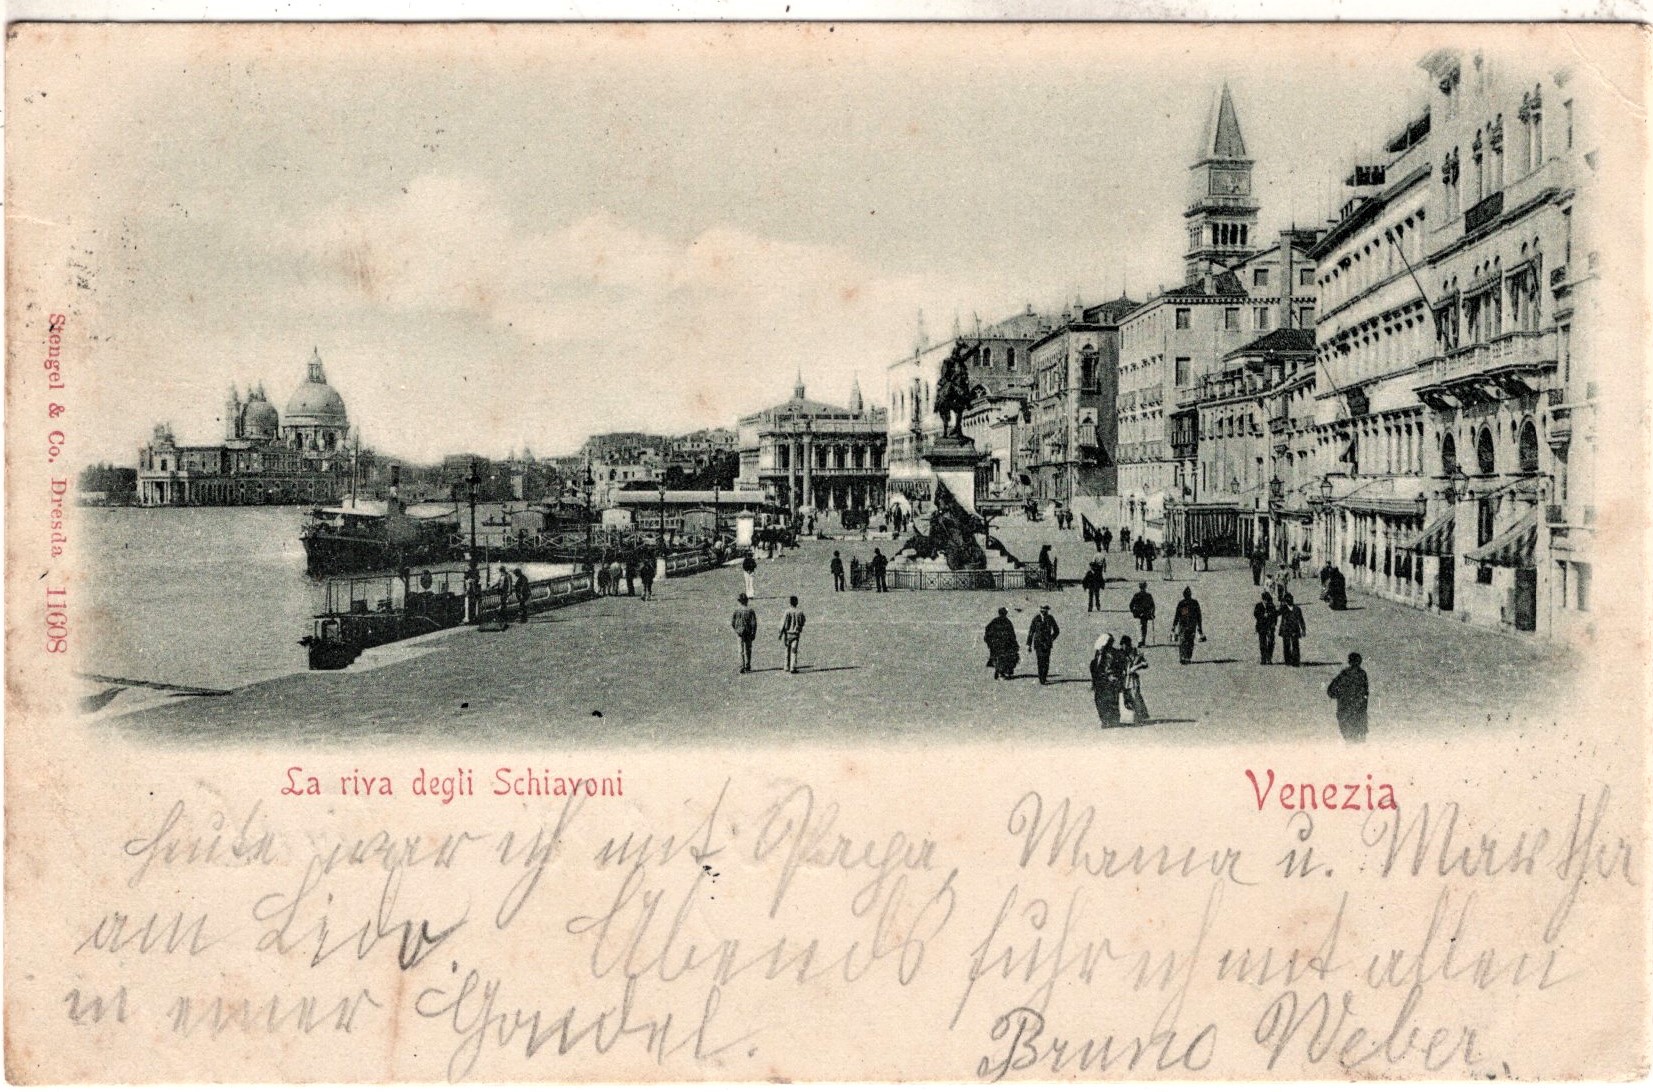 Stengel & Co. Dresda 11608
La riva degli Schiavoni
Venezia
Heute war ich mit Papa, Mama u. Martha
am Lido. Abends fuhr ich mit allen
in einer Gondel.
Bruno Weber.